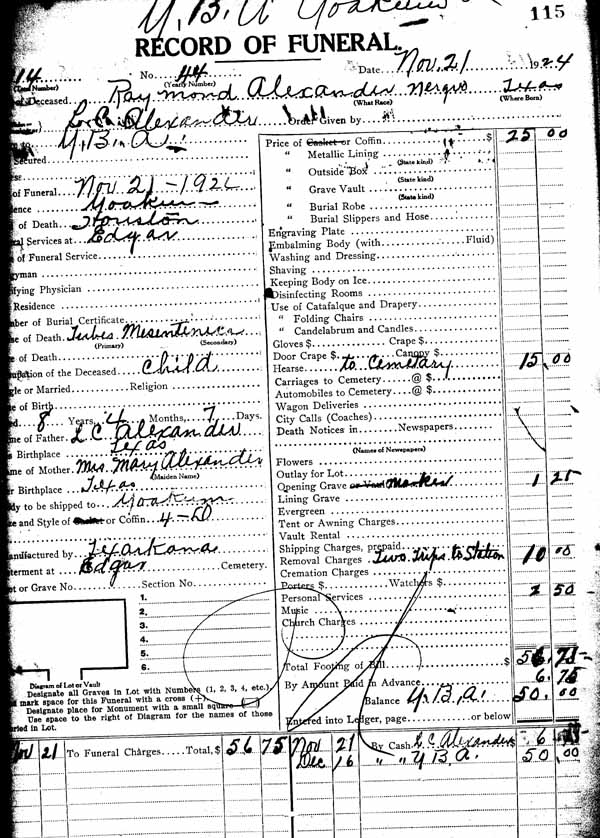 Y. B. A Yoakum
115
RECORD OF FUNERAL.
14 No. 44 Date Nov. 21 1924
(Total Number) (Yearly Number)
of Deceased Raymond Alexander Negro Texas
(What Race) (Where Born)
L. C. Alexander Order Given by
Y. B. A.
Secured
of Funeral Nov 21-192
ence Yoakum
of Death Houston
ral Services at Edgar
e of Funeral Service
gyman
ifying Physician
Residence
ber of Burial Certificate
se of Death Tubes Mesenterica
(Primary) (Secondary)
e of Death
upation of the Deceased child
gle or Married Religion
e of Birth
ed 8 Years, 4 Months, 7 Days.
me of Father L C Alexander
s Birthplace Texas
me of Mother Mrs. Mary Alexander
(Maiden Name)
r Birthplace Texas
dy to be shipped to Yoakum
ze and Style of Casket or Coffin 4-0
anufactured by Texarkana
terment at Edgar Cemetery.
ot or Grave No. Section No.
1.
2.
3.
4.
5.
6.
Diagram of Lot or Vault
Designate all Graves in Lot with Numbers (1, 2, 3, 4, etc.),
mark space for this Funeral with a cross (+)
Designate place for Monument with a small square
Use space to the right of Diagram for the names of those
ried in Lot.
Price of Casket or Coffin $ 25 00
" Metallic Lining
(State kind)
" Outside Box
(State kind)
" Grave Vault
(State kind)
" Burial Robe
" Burial Slippers and Hose
Engraving Plate
Embalming Body (with Fluid)
Washing and Dressing
Shaving
Keeping Body on Ice
Disinfecting Rooms
Use of Catafalque and Drapery
" Folding Chairs
" Candelabrum and Candles
Gloves $ Crape $
Door Crape $ Canopy $
Hearse to Cemetary 15 00
Carriages to Cemetery @ $
Automobiles to Cemetery @ $
Wagon Deliveries
City Calls (Coaches)
Death Notices in Newspapers
(Names of Newspapers)
Flowers
Outlay for Lot
Opening Grave or Vault Marker 1 25
Lining Grave
Evergreen
Tent or Awning Charges
Vault Rental
Shipping Charges, prepaid
Removal Charges Two Trips to Station 10 00
Cremation Charges
Porters $ Watchers $
Personal Services 2 50
Music
Church Charges
Total Footing of Bill $ 56 75
By Amount Paid in Advance 6.75
Balance Y. B. A. 50.00
Entered into Ledger, page or below
Nov 21 To Funeral Charges Total, $ 56 75 Nov 21 By Cash L C Alexander 6
Dec 16 " " Y B. A. 50 00